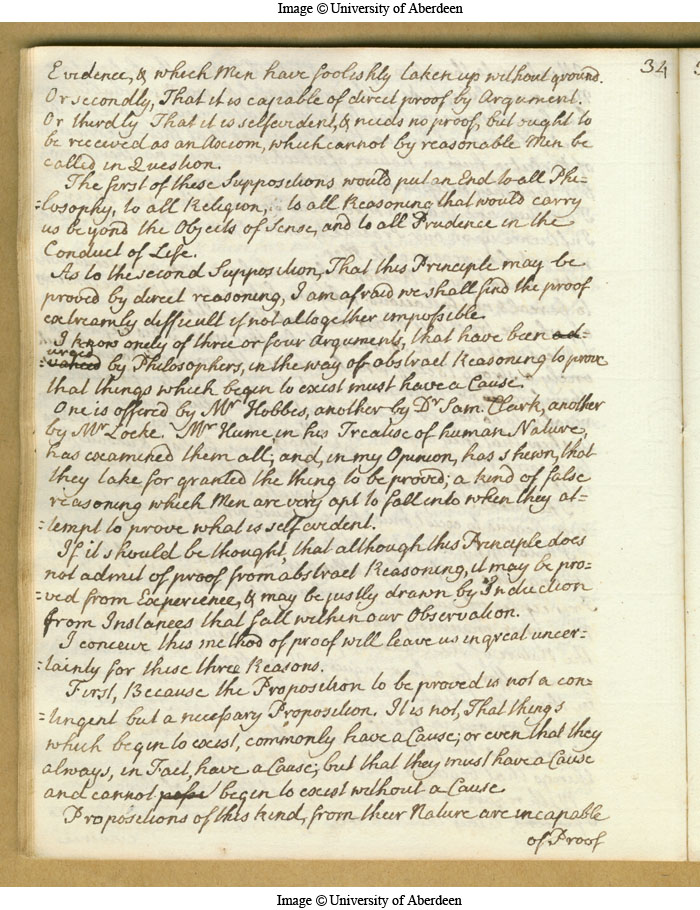 Image © University of Aberdeen
34
Evidence, & which Men have foolishly taken up without ground.
Or secondly, That it is capable of direct proof by Argument.
Or thirdly That it is selfevident, & needs no proof, but ought to
be received as an Axiom, which cannot by reasonable Men be
called in Question.
The first of these Suppositions would put an End to all Phi=
=losophy, to all Religion, to all Reasoning that would carry
us beyond the Objects of Sense, and to all Prudence in the
Conduct of Life.
As to the second Supposition, That this Principle may be
proved by direct reasoning, I am afraid we shall find the proof
extreamly difficult if not altogether impossible.
I know onely of three or four Arguments, that have been ad=
urged
=vanced by Philosophers, in the way of abstract Reasoning to prove
that things which begin to exist must have a Cause.
One is offered by Mr Hobbes, another by Dr Sam. Clark, another
by Mr Locke. Mr Hume, in his Treatise of human Nature,
has examined them all; and, in my Opinion, has shewn, that
they take for granted the thing to be proved; a kind of false
reasoning which Men are very apt to fall into when they at=
=tempt to prove what is selfevident.
If it should be thought, that although this Principle does
not admit of proof from abstract Reasoning, it may be pro=
=ved from Experience, & may be justly drawn by Induction
from Instances that fall within our Observation.
I conceive this method of proof will leave us in great uncer=
=tainty for these three Reasons.
First, Because the Proposition to be proved is not a con=
=tingent but a necessary Proposition. It is not, That things
which begin to exist, commonly have a Cause; or even that they
always, in Fact, have a Cause; but that they must have a Cause
and cannot begin to exist without a Cause.
Propositions of this kind, from their Nature are incapable
of Proof
Image © University of Aberdeen